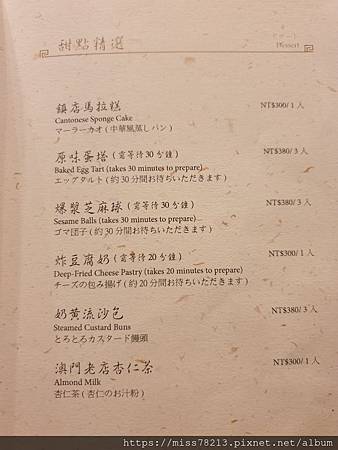 甜點精選
デザート
Dessert
鎮店馬拉糕 NT$300/ 1 人
Cantonese Sponge Cake
マーラーカオ ( 中華風蒸しパン )
原味蛋撻 (需等待30分鐘) NT$380/ 3 人
Baked Egg Tart (takes 30 minutes to prepare)
エッグタルト ( 約 30 分間お待ちいただきます )
爆漿芝麻球 (需等待30分鐘) NT$380/ 3 人
Sesame Balls (takes 30 minutes to prepare)
ゴマ団子 ( 約 30 分間お待ちいただきます )
炸豆腐奶 (需等待20分鐘) NT$300/ 1 人
Deep-Fried Cheese Pastry (takes 20 minutes to prepare)
チーズの包み揚げ ( 約 20 分間お待ちいただきます )
奶黃流沙包 NT$380/ 3 人
Steamed Custard Buns
とろとろカスタード饅頭
澳門老店杏仁茶 NT$300/ 1 人
Almond Milk
杏仁茶 ( 杏仁のお汁粉 )
https://miss78213.pixnet.net/album